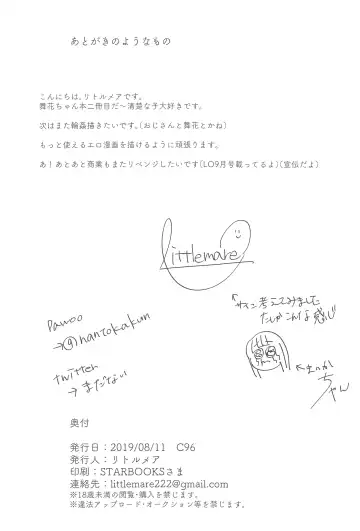 あとがきのようなもの
こんにちは。リトルメアです。
舞花ちゃん本二冊目だ～清楚な子大好きです。
次はまた輪姦描きたいです。(おじさんと舞花とかね)
もっと使えるエロ漫画を描けるように頑張ります。
あ！あとあと商業もまたリベンジしたいです(LO9月号載ってるよ)(宣伝だよ)
Littlemare
↑サイン考えてみました
たしかこんな感じ
pawoo
→@nantokakun
twitter
→まだない
←まいか
ちゃん
奥付
発行日：2019/08/11　C96
発行人：リトルメア
印刷：STARBOOKSさま
連絡先：littlemare222@gmail.com
※18歳未満の閲覧・購入を禁じます。
※違法アップロード・オークション等を禁じます。